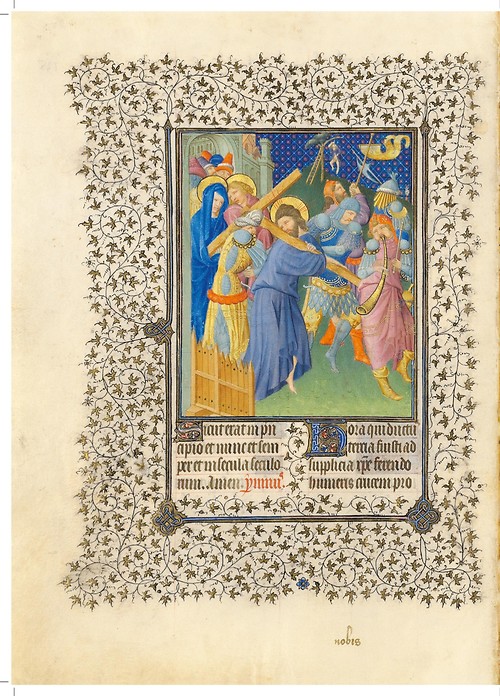 Sicut erat in prin
cipio et nunc et sem
per et in secula seculo
rum. Amen. ymnus.
Hora qui ductus
tercia fuisti ad
supplicia xpe ferendo
humeris crucem pro
nobis